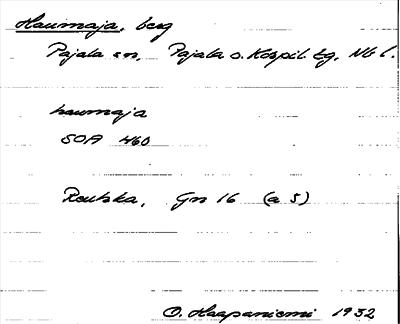 Haumaja, berg
Pajala sn, Pajala o. Korpil. tg, Nb l.
haumaja
SOA 460
Routska, Gn 16 (a 5)
O. Haapaniemi 1932